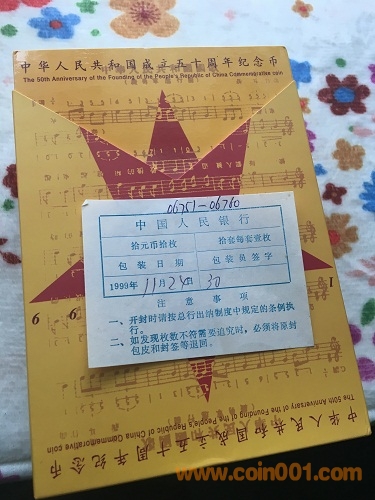 中华人民共和国成立五十周年纪念币
The 50th Anniversary of the Founding of the People's Republic of China Commemorative coin
06751-06760
中国人民银行
拾元币拾枚 拾套每套壹枚
包装日期 包装员签字
1999年 11月24日 30
注意事项
一、开封时请按总行出纳制度中规定的条例执行。
二、如发现枚数不符需要追究时，必须将原封包皮和封签等退回。
1 9 9
中华人民共和国成立五十周年纪念币
The 50th Anniversary of the Founding of the People's Republic of China Commemorative coin
www.coin001.com